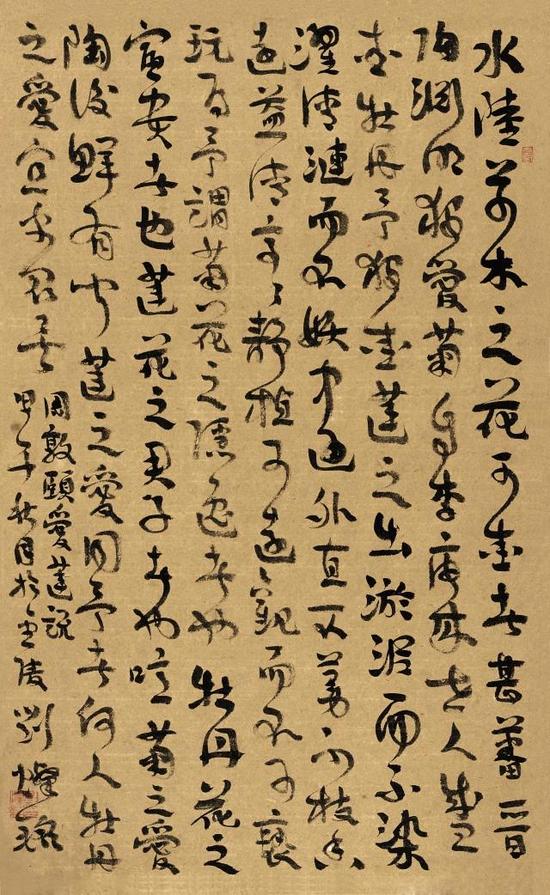 水陸草木之花可愛者甚蕃晉
陶淵明獨愛菊自李唐來世人盛
愛牡丹予獨愛蓮之出淤泥而不染
濯清漣而不妖中通外直不蔓不枝香
遠益清亭々靜植可遠觀而不可褻
玩焉予謂菊花之隱逸者也牡丹花之
富貴者也蓮花之君子者也噫菊之愛
陶後鮮有聞蓮之愛同予者何人牡丹
之愛宜乎眾矣
周敦頤愛蓮說
甲午秋月於金陵劉燦銘